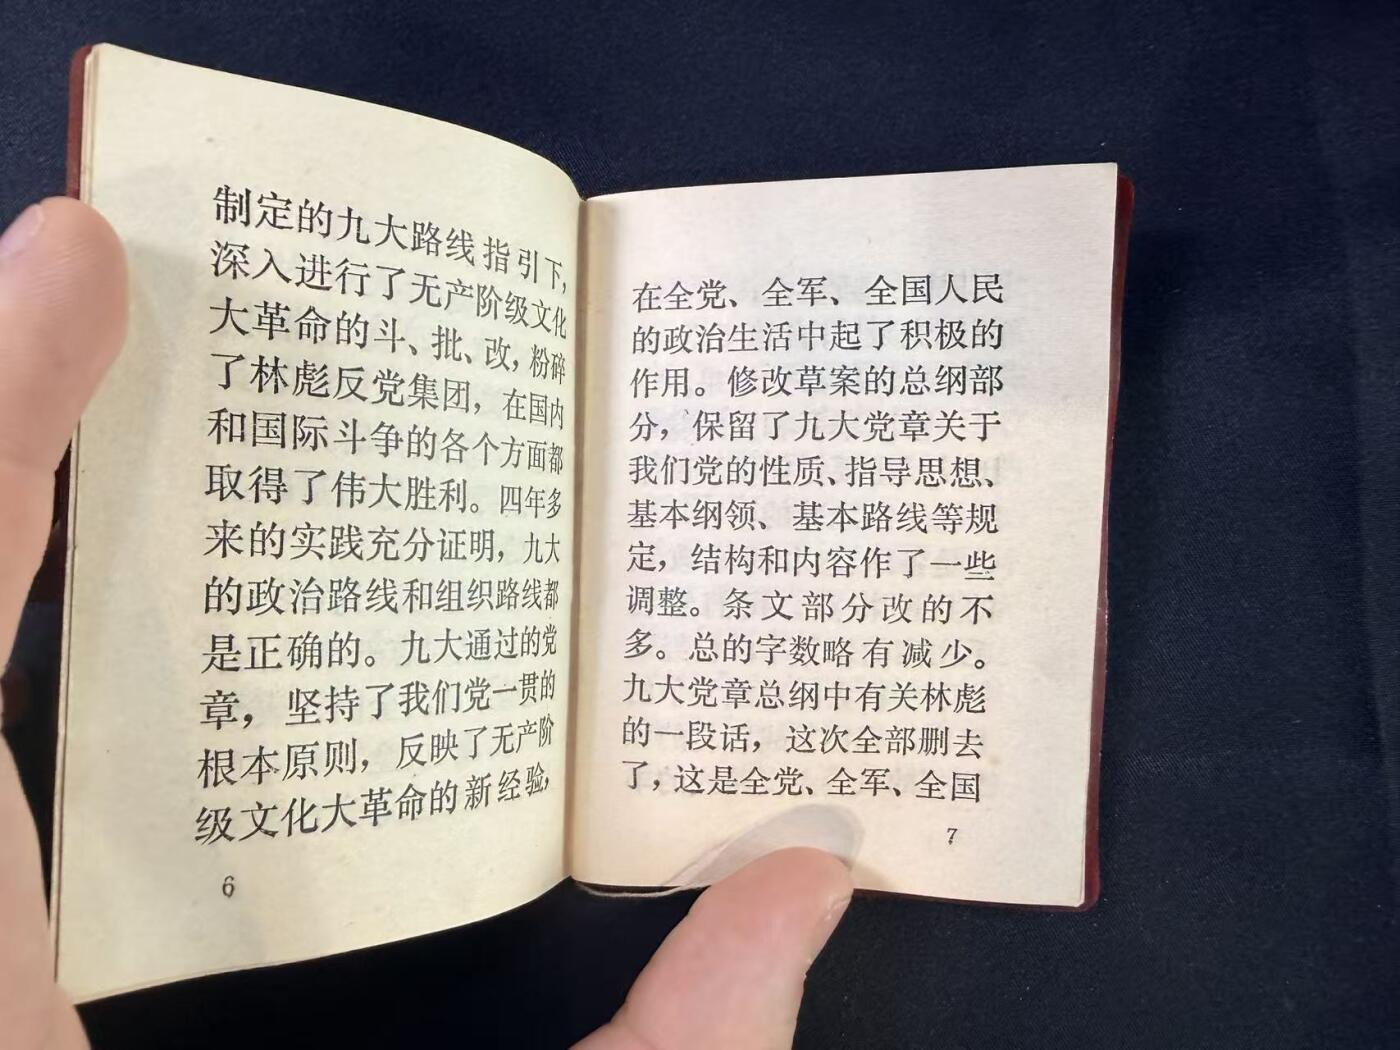 制定的九大路线指引下，
深入进行了无产阶级文化
大革命的斗、批、改，粉碎
了林彪反党集团，在国内
和国际斗争的各个方面都
取得了伟大胜利。四年多
来的实践充分证明，九大
的政治路线和组织路线都
是正确的。九大通过的党
章，坚持了我们党一贯的
根本原则，反映了无产阶
级文化大革命的新经验，
6
在全党、全军、全国人民
的政治生活中起了积极的
作用。修改草案的总纲部
分，保留了九大党章关于
我们党的性质、指导思想、
基本纲领、基本路线等规
定，结构和内容作了一些
调整。条文部分改的不
多。总的字数略有减少。
九大党章总纲中有关林彪
的一段话，这次全部删去
了，这是全党、全军、全国
7